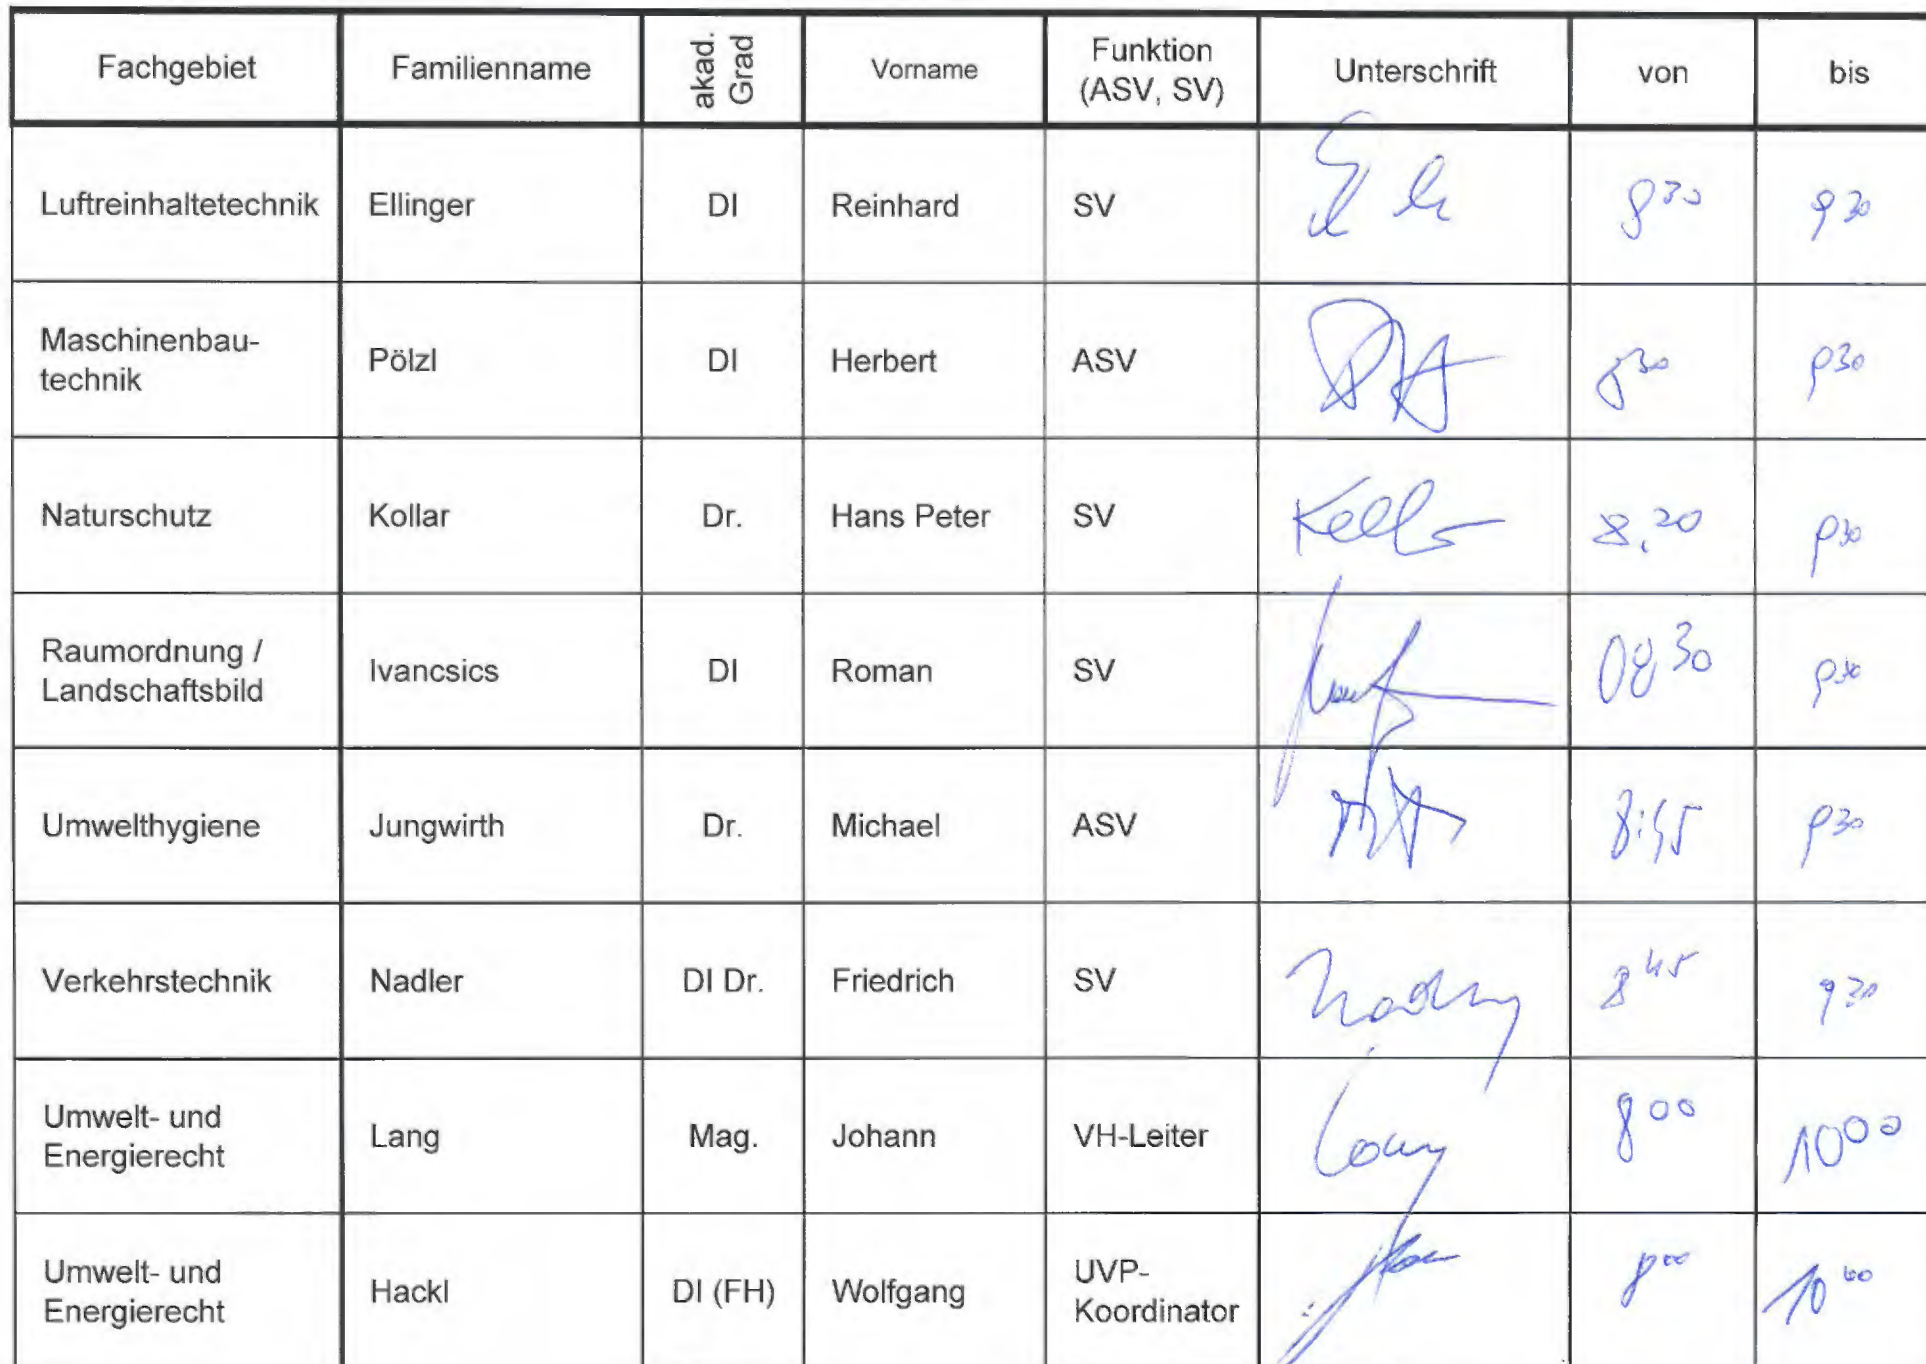 Fachgebiet Familienname akad. Grad Vorname Funktion (ASV, SV) Unterschrift von bis
Luftreinhaltetechnik Ellinger DI Reinhard SV 8 30 9 30
Maschinenbau-
technik Pölzl DI Herbert ASV 8 30 9 30
Naturschutz Kollar Dr. Hans Peter SV 8.20 9 30
Raumordnung /
Landschaftsbild Ivancsics DI Roman SV 08 30 9 30
Umwelthygiene Jungwirth Dr. Michael ASV 8:45 9 30
Verkehrstechnik Nadler DI Dr. Friedrich SV 8 45 9 30
Umwelt- und
Energierecht Lang Mag. Johann VH-Leiter 8 00 10 00
Umwelt- und
Energierecht Hackl DI (FH) Wolfgang UVP-
Koordinator 8 00 10 00